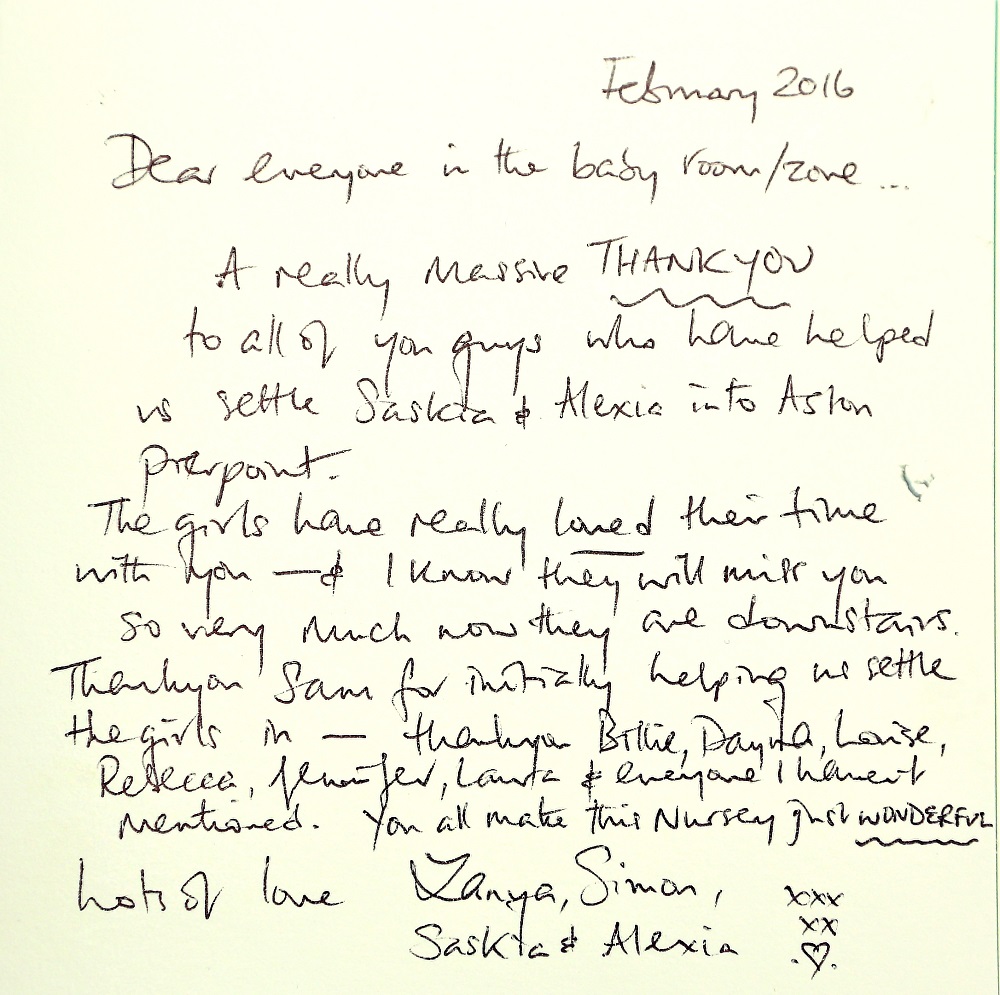 February 2016
Dear everyone in the baby room/zone ...
A really Massive THANKYOU
to all of you guys who have helped
us settle Saskia & Alexia into Aston
pierpoint.
The girls have really loved their time
with you — & I know they will miss you
so very much now they are downstairs.
Thankyou Sam for initially helping us settle
the girls in — thankyou Billie, Dayna, Louise,
Rebecca, Jennifer, Laura & everyone I havent
mentioned. You all make this Nursery just WONDERFUL
Lots of love Zanya, Simon, xxx
xx
Saskia & Alexia